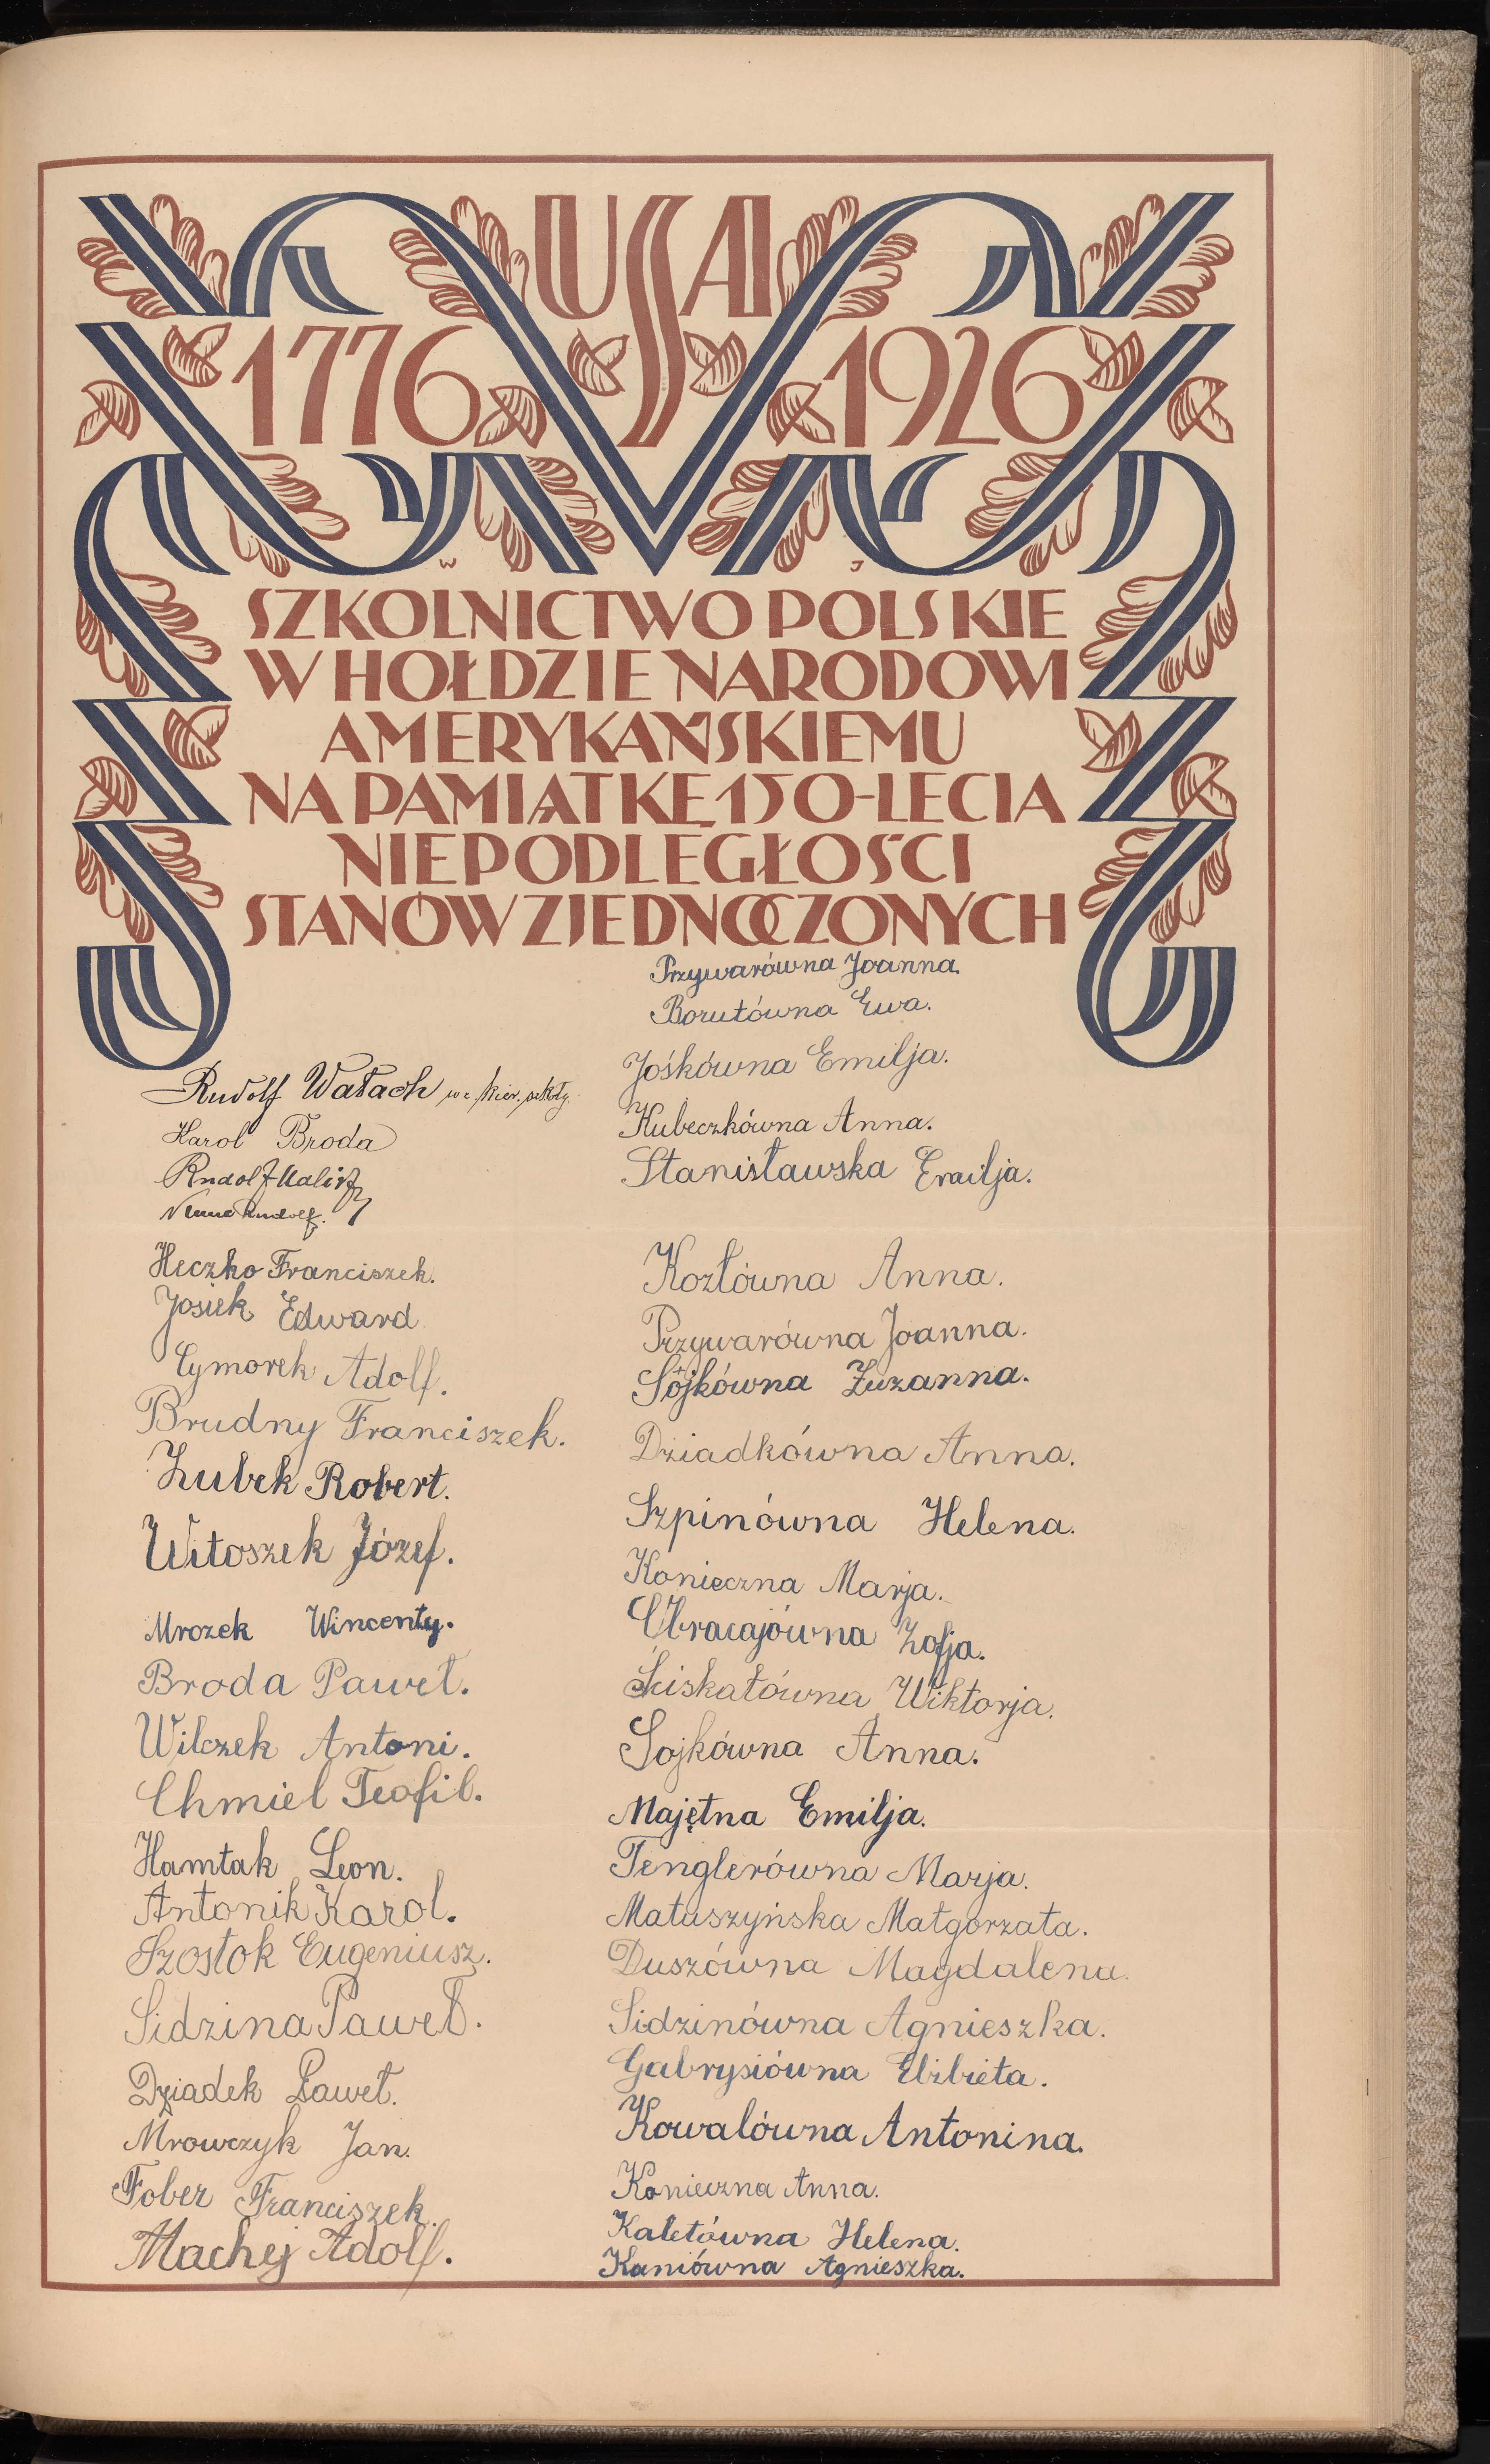 USA
1776 1926
W J
SZKOLNICTWO POLSKIE
W HOŁDZIE NARODOWI
AMERYKAŃSKIEMU
NA PAMIĄTKĘ 150-LECIA
NIEPODLEGŁOŚCI
STANÓW ZJEDNOCZONYCH
Rudolf Wałach kier. szkoły
Karol Broda
Rudolf
Rudolf.
Heczko Franciszek.
Josiek Edward
Cymorek Adolf.
Brudny Franciszek.
Zubek Robert.
Witoszek Józef.
Mrozek Wincenty.
Broda Paweł.
Wilczek Antoni.
Chmiel Teofil.
Hamtak Leon.
Antonik Karol.
Szostok Eugeniusz.
Sidzina Paweł.
Dziadek Paweł.
Mrowczyk Jan.
Fober Franciszek.
Machej Adolf.
Przywarówna Joanna.
Borutówna Ewa.
Jośkówna Emilja.
Kubeczkówna Anna.
Stanisławska Emilja.
Kozłówna Anna.
Przywarówna Joanna.
Sójkówna Zuzanna.
Dziadkówna Anna.
Szpinówna Helena.
Konieczna Marja.
Obracajówna Zofja.
Ściskałówna Wiktorja.
Sojkówna Anna.
Majętna Emilja.
Tenglerówna Marja.
Matuszyńska Małgorzata.
Duszówna Magdalena.
Sidzinówna Agnieszka.
Gabrysiówna Elżbieta.
Kowalówna Antonina.
Konieczna Anna.
Kaletówna Helena.
Kaniówna Agnieszka.